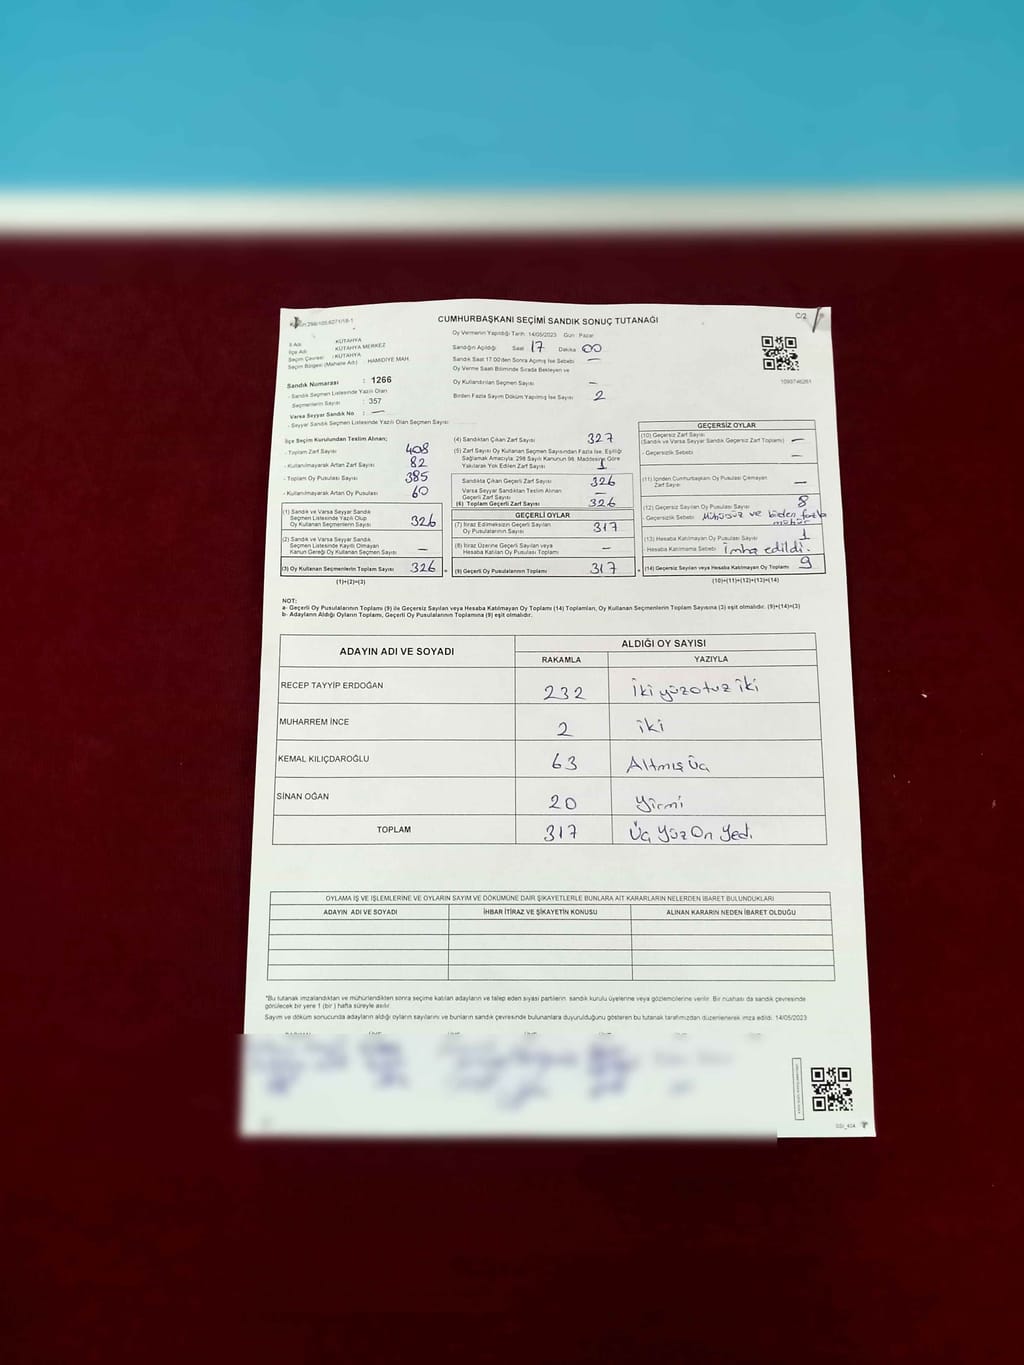 CUMHURBAŞKANI SEÇİMİ SANDIK SONUÇ TUTANAĞI
C/2
Oy Vermenin Yapıldığı Tarih: 14/05/2023 Gün: Pazar
İl Adı : KÜTAHYA
İlçe Adı : KÜTAHYA MERKEZ
Seçim Çevresi : KÜTAHYA
Seçim Bölgesi (Mahalle Adı) : HAMİDİYE MAH.
Sandığın Açıldığı Saat 17 Dakika 00
Sandık Saat 17:00'den Sonra Açılmış İse Sebebi —
Oy Verme Saati Bitiminde Sırada Bekleyen ve
Oy Kullandırılan Seçmen Sayısı —
Birden Fazla Sayım Döküm Yapılmış İse Sayısı 2
1093746261
Sandık Numarası : 1266
- Sandık Seçmen Listesinde Yazılı Olan
Seçmenlerin Sayısı : 357
Varsa Seyyar Sandık No : —
- Seyyar Sandık Seçmen Listesinde Yazılı Olan Seçmen Sayısı:
İlçe Seçim Kurulundan Teslim Alınan;
- Toplam Zarf Sayısı 408
- Kullanılmayarak Artan Zarf Sayısı 82
- Toplam Oy Pusulası Sayısı 385
- Kullanılmayarak Artan Oy Pusulası 60
(1) Sandık ve Varsa Seyyar Sandık
Seçmen Listesinde Yazılı Olup
Oy Kullanan Seçmenlerin Sayısı 326
(2) Sandık ve Varsa Seyyar Sandık
Seçmen Listesinde Kayıtlı Olmayan
Kanun Gereği Oy Kullanan Seçmen Sayısı —
(3) Oy Kullanan Seçmenlerin Toplam Sayısı 326
(1)+(2)=(3)
(4) Sandıktan Çıkan Zarf Sayısı 327
(5) Zarf Sayısı Oy Kullanan Seçmen Sayısından Fazla İse, Eşitliği
Sağlamak Amacıyla, 298 Sayılı Kanunun 98. Maddesine Göre
Yakılarak Yok Edilen Zarf Sayısı 1
Sandıkta Çıkan Geçerli Zarf Sayısı 326
Varsa Seyyar Sandıktan Teslim Alınan
Geçerli Zarf Sayısı —
(6) Toplam Geçerli Zarf Sayısı 326
GEÇERLİ OYLAR
(7) İtiraz Edilmeksizin Geçerli Sayılan
Oy Pusulalarının Sayısı 317
(8) İtiraz Üzerine Geçerli Sayılan veya
Hesaba Katılan Oy Pusulası Toplamı —
(9) Geçerli Oy Pusulalarının Toplamı 317
GEÇERSİZ OYLAR
(10) Geçersiz Zarf Sayısı
(Sandık ve Varsa Seyyar Sandık Geçersiz Zarf Toplamı) —
- Geçersizlik Sebebi —
(11) İçinden Cumhurbaşkanı Oy Pusulası Çıkmayan
Zarf Sayısı —
(12) Geçersiz Sayılan Oy Pusulası Sayısı 8
- Geçersizlik Sebebi Mühürsüz ve birden fazla
mühür
(13) Hesaba Katılmayan Oy Pusulası Sayısı 1
- Hesaba Katılmama Sebebi İmha edildi.
(14) Geçersiz Sayılan veya Hesaba Katılmayan Oy Toplamı 9
(10)+(11)+(12)+(13)=(14)
NOT:
a- Geçerli Oy Pusulalarının Toplamı (9) ile Geçersiz Sayılan veya Hesaba Katılmayan Oy Toplamı (14) Toplamları, Oy Kullanan Seçmenlerin Toplam Sayısına (3) eşit olmalıdır. (9)+(14)=(3)
b- Adayların Aldığı Oyların Toplamı, Geçerli Oy Pusulalarının Toplamına (9) eşit olmalıdır.
ADAYIN ADI VE SOYADI ALDIĞI OY SAYISI
RAKAMLA YAZIYLA
RECEP TAYYİP ERDOĞAN 232 İki yüz otuz iki
MUHARREM İNCE 2 iki
KEMAL KILIÇDAROĞLU 63 Altmış üç
SİNAN OĞAN 20 Yirmi
TOPLAM 317 Üç Yüz On Yedi
OYLAMA İŞ VE İŞLEMLERİNE VE OYLARIN SAYIM VE DÖKÜMÜNE DAİR ŞİKAYETLERLE BUNLARA AİT KARARLARIN NELERDEN İBARET BULUNDUKLARI
ADAYIN ADI VE SOYADI İHBAR İTİRAZ VE ŞİKAYETİN KONUSU ALINAN KARARIN NEDEN İBARET OLDUĞU
*Bu tutanak imzalandıktan ve mühürlendikten sonra seçime katılan adayların ve talep eden siyasi partilerin sandık kurulu üyelerine veya gözlemcilerine verilir. Bir nushası da sandık çevresinde
görülecek bir yere 1 (bir) hafta süreyle asılır.
Sayım ve döküm sonucunda adayların aldığı oyların sayılarını ve bunların sandık çevresinde bulunanlara duyurulduğunu gösteren bu tutanak tarafımızdan düzenlenerek imza edildi. 14/05/2023